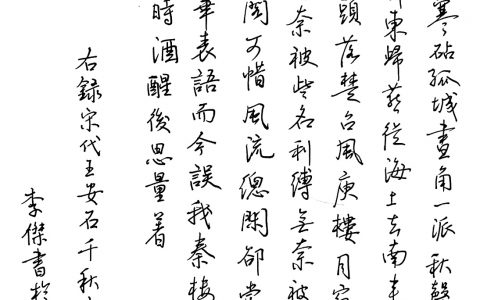 寒砧孤城畫角一派秋聲
東歸燕從海上去南來
頭落楚台風庾樓月宛
奈被些名利縛無奈被
閣可惜風流總閑卻當
華表語而今誤我秦樓
時酒醒後思量着
右錄宋代王安石千秋
李傑書於